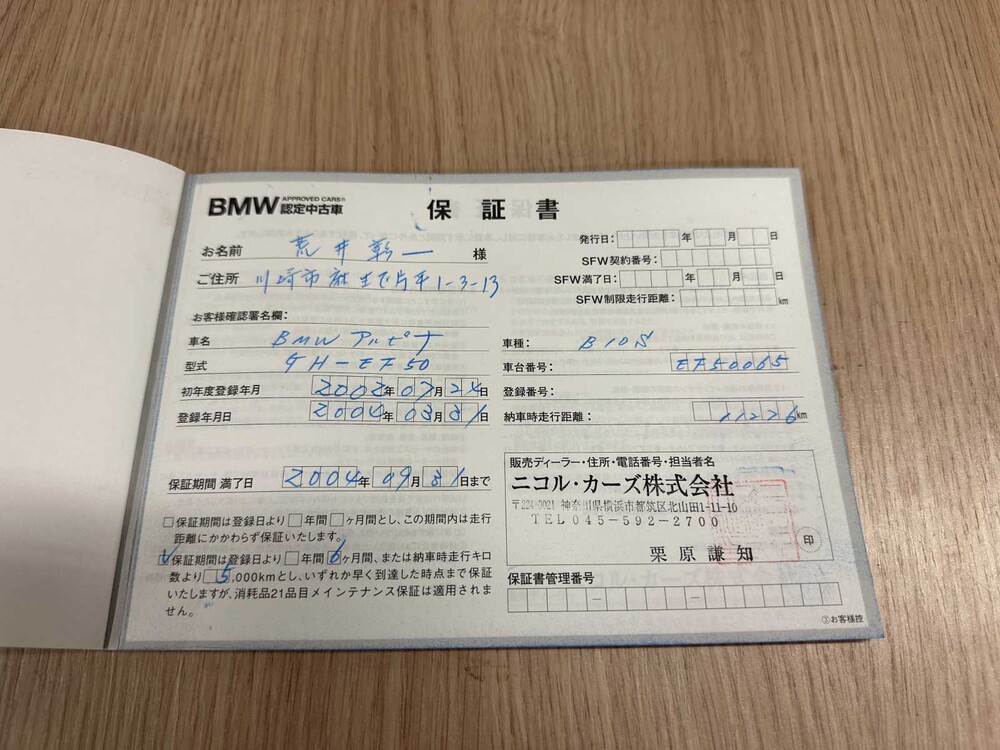 BMW APPROVED CARS® 認定中古車
保証書
お名前 荒井 一 様
ご住所 川崎市麻生区片平1-3-13
お客様確認署名欄:
発行日: 年 月 日
SFW契約番号:
SFW満了日: 年 月 日
SFW制限走行距離: km
車名 BMW アルピナ
型式 GH-EF50
初年度登録年月 2002年07月24日
登録年月日 2004年03月31日
車種: B10S
車台番号: EF50065
登録番号:
納車時走行距離: 11226km
保証期間 満了日 2004年09月31日まで
□保証期間は登録日より□年間□ヶ月間とし、この期間内は走行
距離にかかわらず保証いたします。
✓保証期間は登録日より□年間6ヶ月間、または納車時走行キロ
数より5,000kmとし、いずれか早く到達した時点まで保証
いたしますが、消耗品21品目メインテナンス保証は適用されま
せん。
販売ディーラー・住所・電話番号・担当者名
ニコル・カーズ株式会社
〒224-0021 神奈川県横浜市都筑区北山田1-11-10
TEL 045-592-2700
栗原謙知
印
保証書管理番号
③お客様控